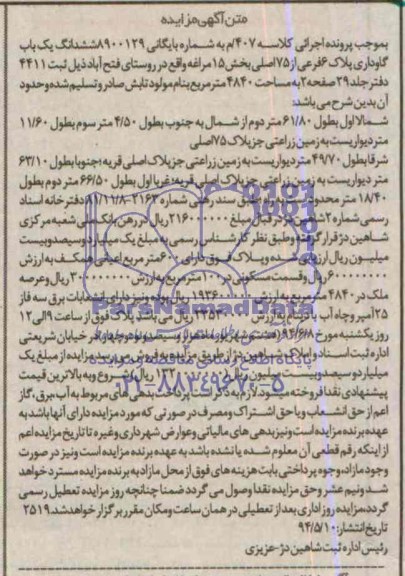 متن آگهی مزایده
بموجب پرونده اجرائی کلاسه ۴۰۷/م به شماره بایگانی ۸۹۰۰۱۲۹ ششدانگ یک باب
گاوداری پلاک ۶ فرعی از ۷۵ اصلی بخش ۱۵ مراغه واقع در روستای فتح آباد ذیل ثبت ۴۴۱۱
دفتر جلد ۲۹ صفحه ۲ به مساحت ۴۸۴۰ متر مربع بنام مولود تابش صادر و تسلیم شده وحدود
آن بدین شرح می باشد:
شمالا اول بطول ۶۱/۸۰ متر دوم از شمال به جنوب بطول ۴/۵۰ متر سوم بطول ۱۱/۶۰
متر دیواریست به زمین زراعتی جز پلاک ۷۵ اصلی
شرقا بطول ۴۹/۷۰ متر دیواریست به زمین زراعتی جز پلاک اصلی قریه؛ جنوبا بطول ۶۳/۱۰
متر دیواریست به زمین زراعتی جز پلاک اصلی قریه؛ غربا اول بطول ۶۶/۵۰ متر دوم بطول
۱۸/۴۰ متر محدود است به راه و طبق سند رهنی شماره ۲۱۶۲-۸۱/۱۱/۸ دفترخانه اسناد
رسمی شماره ۲ شاهین دژ در قبال مبلغ ۲۱۶۰۰۰۰۰۰ ریال در رهن بانک ملی شعبه مرکزی
شاهین دژ قرار گرفته و طبق نظر کارشناس رسمی به مبلغ یک میلیارد و سیصد و بیست
میلیون ریال ارزیابی شده و پلاک فوق دارای ۶۰۰ متر مربع اعیانی همکف به ارزش
ریال و قسمت مسکونی در ۱۰۰ متر مربع به ارزش ریال و عرصه
ملک در ۴۸۴۰ متر مربع به ارزش ریال بوده و نیز دارای انشعابات برق سه فاز
۲۵ آمپر و چاه آب به ارزش ریال می باشد پلاک فوق از ساعت ۹ الی ۱۲
روز یکشنبه مورخ ۹۴/۶/۸ در خیابان شریعتی
اداره ثبت اسناد و املاک شاهین دژ از طریق مزایده به فروش می رسد مزایده از مبلغ یک
میلیارد و سیصد و بیست میلیون ریال ریال شروع و به بالاترین قیمت
پیشنهادی نقدا فروخته میشود لازم به ذکر است پرداخت بدهی های مربوط به آب، برق، گاز
اعم از حق انشعاب و یا حق اشتراک و مصرف در صورتی که مورد مزایده دارای آنها باشد به
عهده برنده مزایده است و نیز بدهی های مالیاتی و عوارض شهرداری و غیره تا تاریخ مزایده اعم
از اینکه رقم قطعی آن معلوم شده یا نشده باشد به عهده برنده مزایده است و نیز در صورت
وجود مازاد، وجوه پرداختی بابت هزینه های فوق از محل مازاد به برنده مزایده مسترد خواهد
شد و نیم عشر و حق مزایده نقدا وصول می گردد ضمنا چنانچه روز مزایده تعطیل رسمی
گردد، مزایده روز اداری بعد از تعطیلی در همان ساعت و مکان مقرر برگزار خواهد شد. ۲۵۱۹
تاریخ انتشار: ۹۴/۵/۱۰
رئیس اداره ثبت شاهین دژ - عزیزی
۰۲۱-۸۸۳۴۹۶۷۰-۵